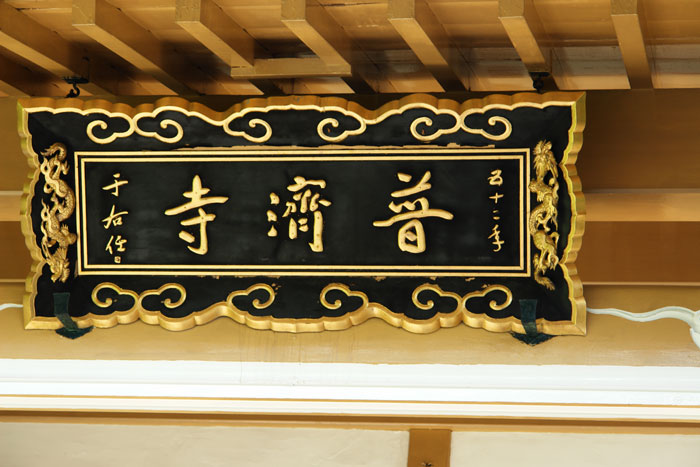 五十二年
普濟寺
于右任